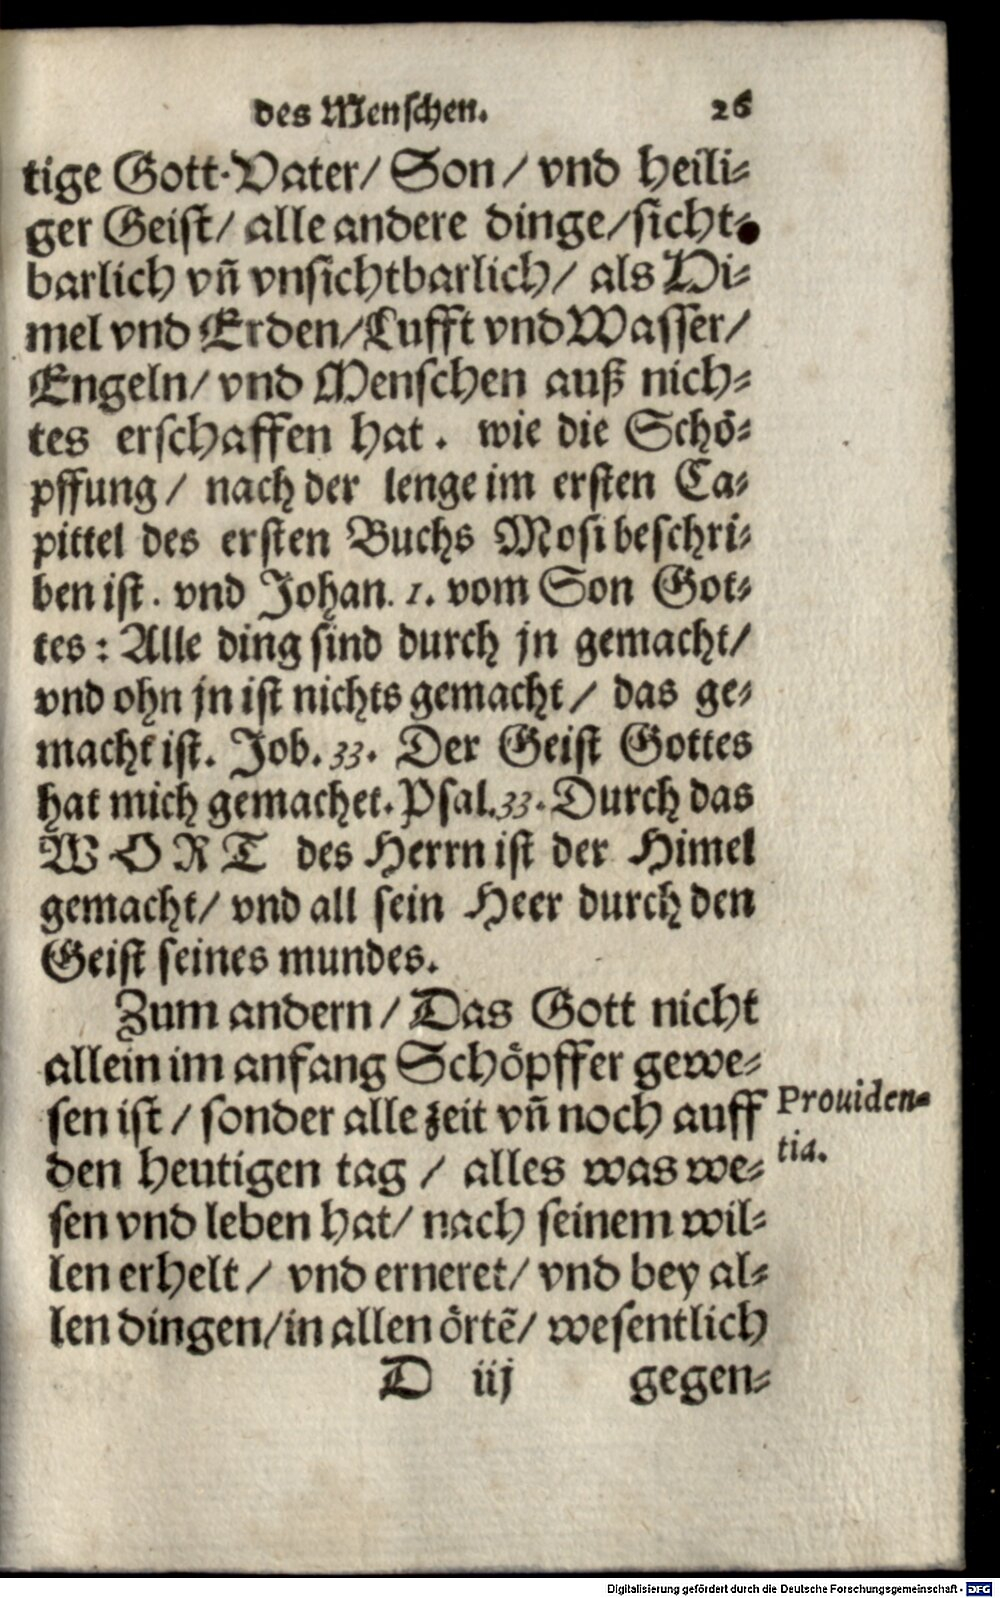 des Menschen. 26
tige Gott Vater/ Son/ vnd heili-
ger Geist/ alle andere dinge/sicht-
barlich vñ vnsichtbarlich/ als Hi-
mel vnd Erden/Lufft vnd Wasser/
Engeln/ vnd Menschen auß nich-
tes erschaffen hat. wie die Schö-
pffung/ nach der lenge im ersten Ca-
pittel des ersten Buchs Mosi beschri-
ben ist. vnd Johan. 1. vom Son Got-
tes: Alle ding sind durch jn gemacht/
vnd ohn jn ist nichts gemacht/ das ge-
macht ist. Job. 33. Der Geist Gottes
hat mich gemachet. Psal. 33. Durch das
WORT des Herrn ist der Himel
gemacht/ vnd all sein Heer durch den
Geist seines mundes.
Zum andern/ Das Gott nicht
allein im anfang Schöpffer gewe-
sen ist/ sonder alle zeit vñ noch auff
Prouiden-
tia.
den heutigen tag/ alles was we-
sen vnd leben hat/ nach seinem wil-
len erhelt/ vnd erneret/ vnd bey al-
len dingen/in allen örtẽ/ wesentlich
D iij gegen-
Digitalisierung gefördert durch die Deutsche Forschungsgemeinschaft - DFG